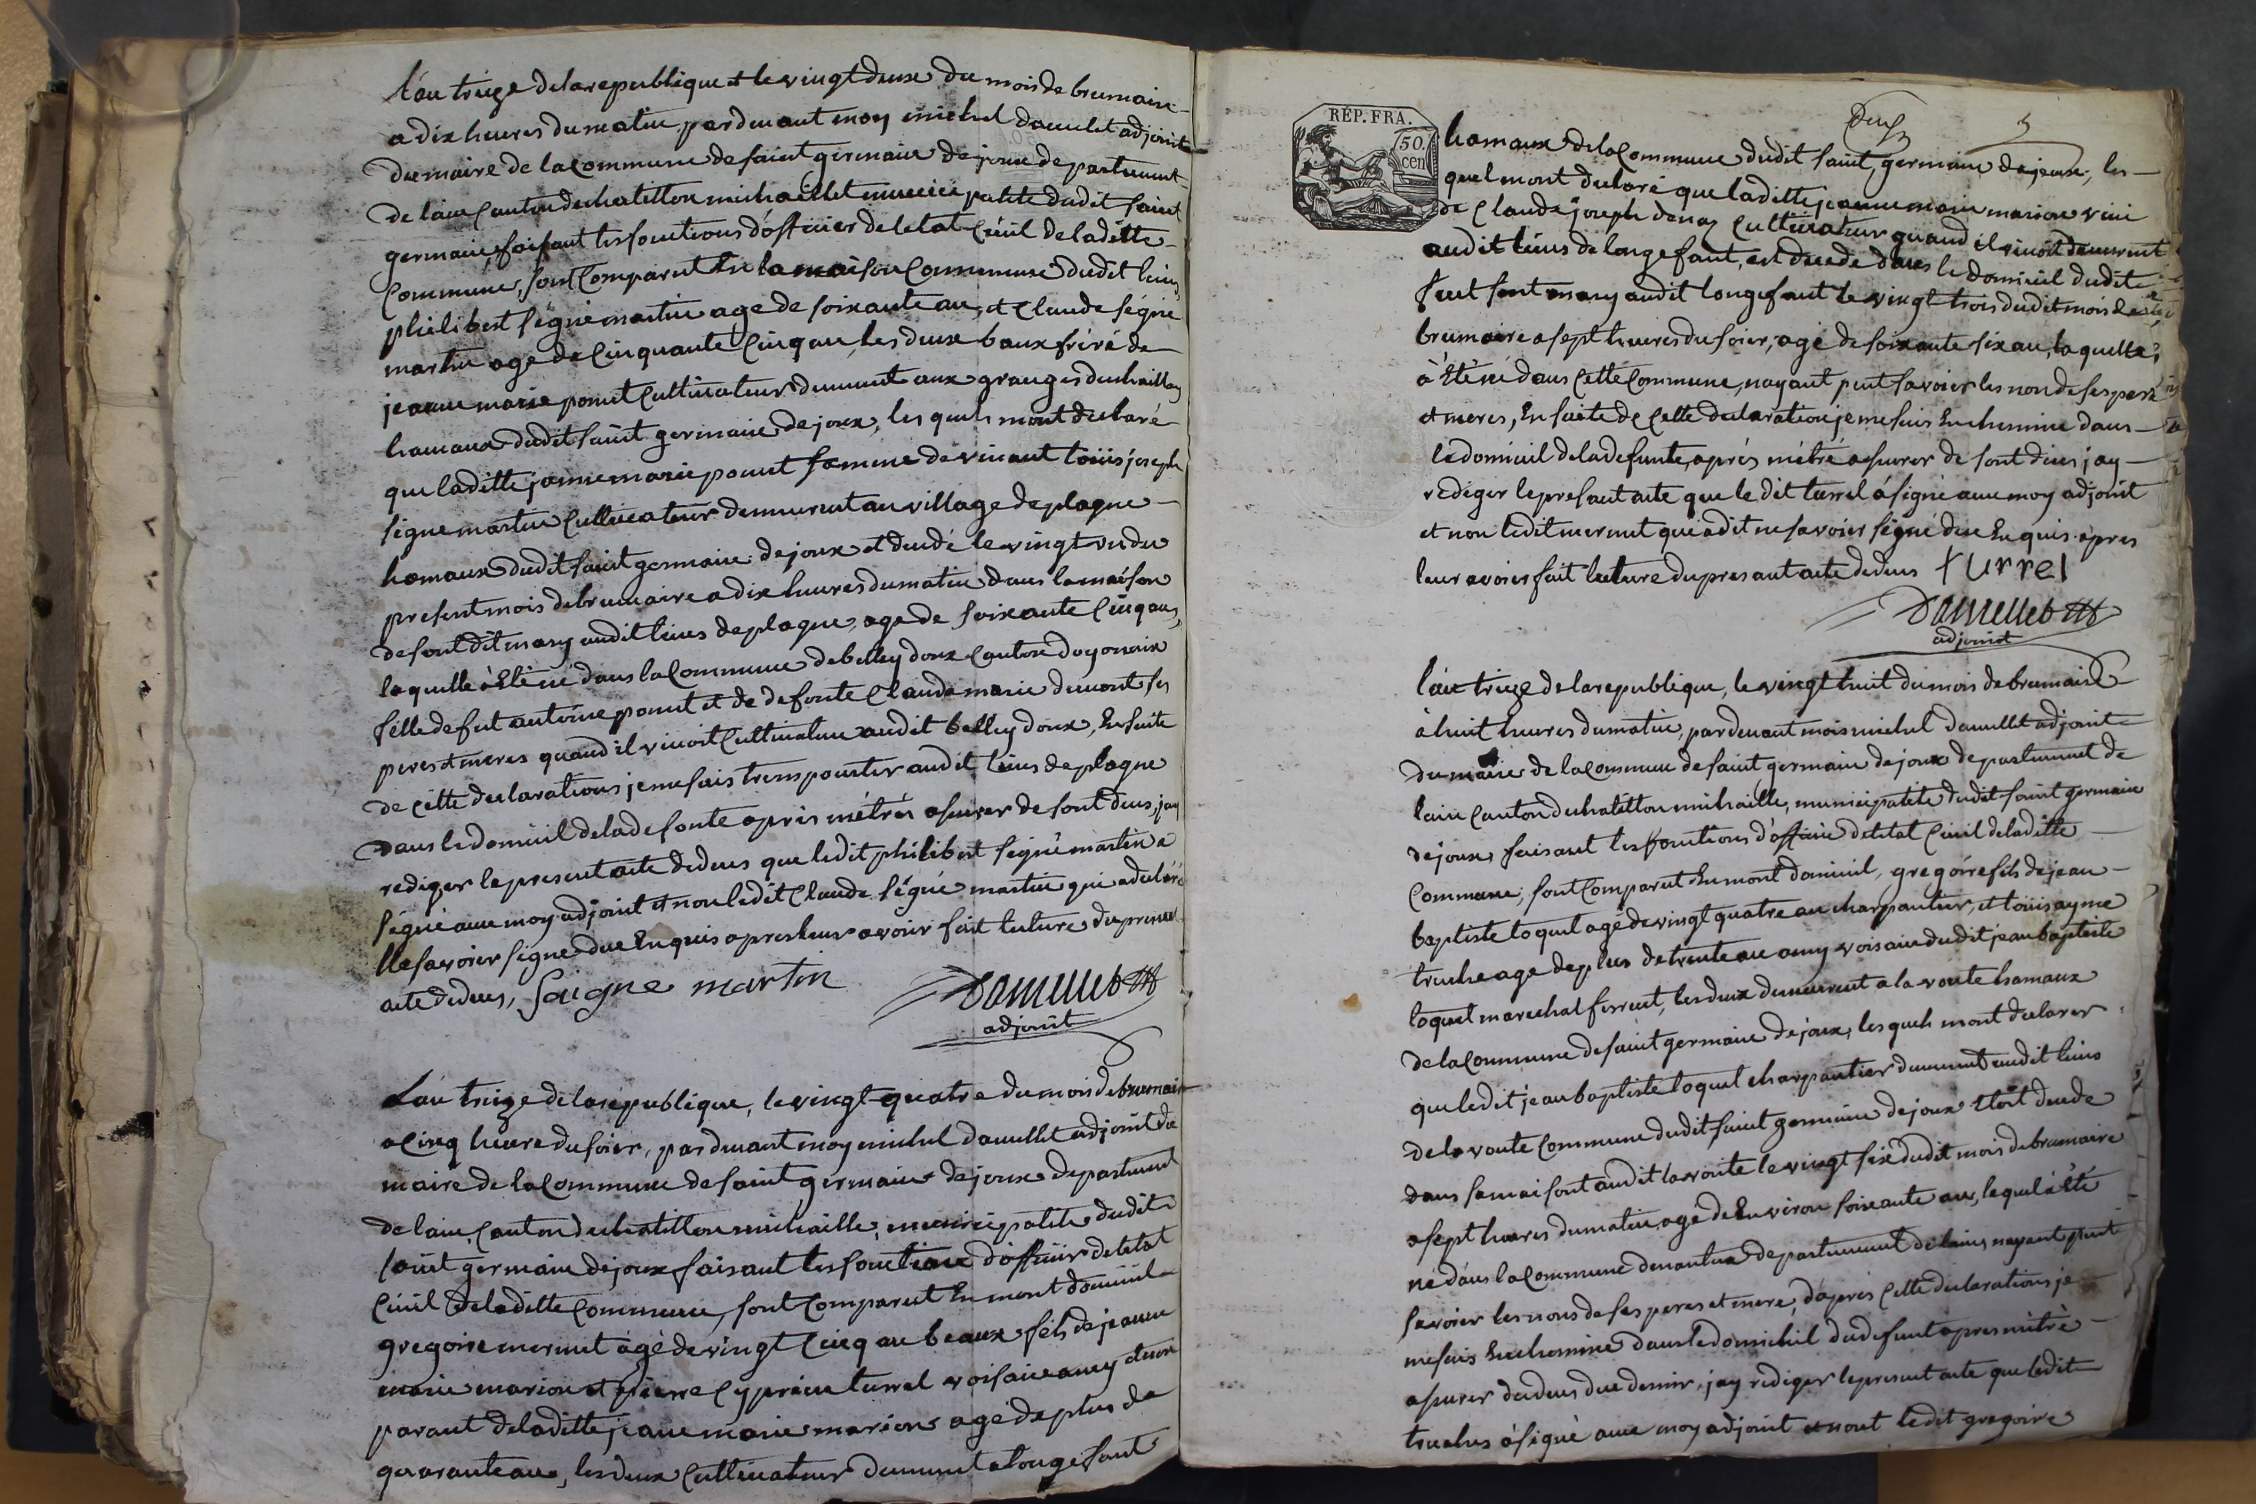 l'an treize de la republique et le vingt deux du mois de brumaire
a dix heures du matin pardevant moy michel daniellet adjoint
du maire de la commune de saint germain de joux departement
de lain canton de chatillon michaille et municipalité dudit saint
germain, faisant les fonctions d'officier de letat civil de laditte
commune, sont comparut en la maison commune dudit lieus
philibert ségné martin age de soixante an, et claude ségné
martin age de cinquante cinq an, les deux baux fréré de
jeanne marie ponut cultivateur demeurent aux granges du
hamaux dudit saint germain de joux, les quels mont declaré
que laditte jeanne marie ponut femme de vivant loüis joseph
segne martin cultivateur demeurent au village de plagne
hamaux dudit saint germain de joux et decedé le vingt un du
present mois de brumaire a dix heures du matin dans la maison
de sont dit mary audit lieus de plagne, age de soixante cinq ans,
laquelle à eté né dans la commune de belleydoux canton doyonaix
fille de fut antoine ponut et de defonte claude marie dumont ses
peres et meres quand il vivoit cultivateur audit belleydoux, En suite
de cette declarations je me sais transpourter audit lieus de plagne
dans le domicil de la defonte après métrés assurer de sont deces, jay
rediger le present acte de deces que ledit philibert segné martin a
ségné avec moy adjoint et non ledit claude ségné martin qui a declaré
ne savoir signé due Enquis apres leur avoir fait lecture du present
acte de deces, saigne martin
daniellet
adjoint
L'an treize de la république, le vingt quatre du mois de brumaire
a cinq heure du soier, pardevant moy michel daniellet adjoint du
maire de la commune de saint germain de joux departement
de lain, canton de chatillon michaille, municipalité dudit
saint germain de joux faisant les fonctions d'officier de letat
civil de laditte commune, sont comparut En mont domicil
gregoire mermet agé de vingt cinq an beaux fils de jeanne
marie marion et pierre cyprien turrel voisain amy et non
parant de laditte jeanne marie marion agé de plus de
quarante an, les deux cultivateur demeurent a longefant
RÉP. FRA.
50 cen
hamaux de la commune dudit saint germain de joux, les
quel mont declaré que laditte jeanne marie marion
de claude joseph cultivateur quand il vivoit demeurent
audit lieus de longefant, est decede dans le domicil dudit
fut sont mary audit longefant le vingt trois dudit mois de
brumaire a sept heures du soier, agé de soixante six an, laquelle
à été né dans cette commune, nayant put savoier les non de ses pere
et meres, En suite de cette declaration je me suis En chemine dans
le domicil de la defunte, après métré assurer de sont deces jay
rédiger le presant acte que le dit turrel à signé avec moy adjoint
et non ledit mermet qui a dit ne savoier segné due Enquis apres
leur avoier fait lecture du presant acte de deces turrel
daniellet
adjoint
l'an treize de la republique, le vingt huit du mois de brumaire
à huit heures du matin, pardevant mois michel daniellet adjoint
du maire de la commune de saint germain de joux departement de
lain canton de chatillon michaille, municipalité dudit saint germain
de joux, faisant les fonctions d'officié de letat civil de laditte
commune, sont comparut En mont domicil, gregoire fils de jean
baptiste loquet agé de vingt quatre an charpantier, et loüis ayme
truche age de plus de trente an amy voisain dudit jean baptiste
loquet marechal ferrent, les deux demeurent a la voute hamaux
de la commune de saint germain de joux, les quels mont declarer
que ledit jean baptiste loquet charpantier demeurent audit lieus
de la voute commune dudit saint germain de joux étoit decede
dans sa maisont audit la voute le vingt six dudit mois de brumaire
a sept heures du matin, age de Environ soixante an, lequel à été
né dans la commune de nantua departement de lain, nayant put
savoier les nons de ses peres et mere, d'après cette declarations je
me suis En chemine dans le domichil du defunt apres mètrè
assurer du deces due dernier, jay rédiger le present acte que ledit
truches à signé avec moy adjoint et nont ledit gregoire